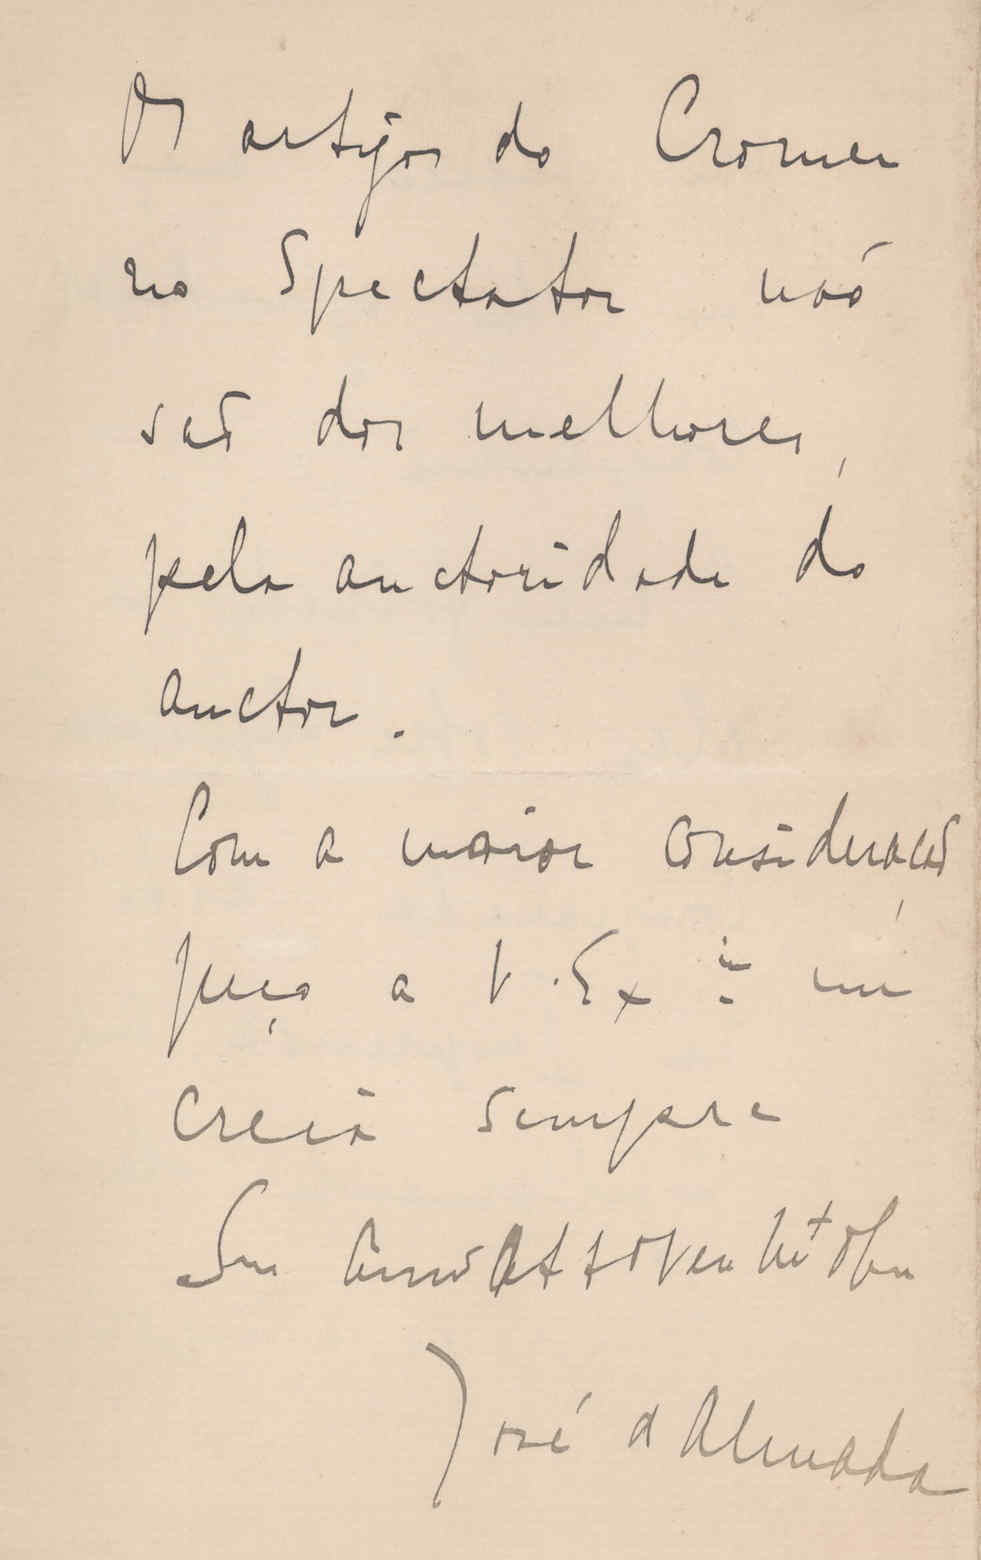 Os artigos do Cromer
no Spectator não
são dos melhores,
pela auctoridade do
auctor.
Com a maior consideração
peço a V. Exª me
creia sempre
Seu Amº Attº Vor
José d'Almada